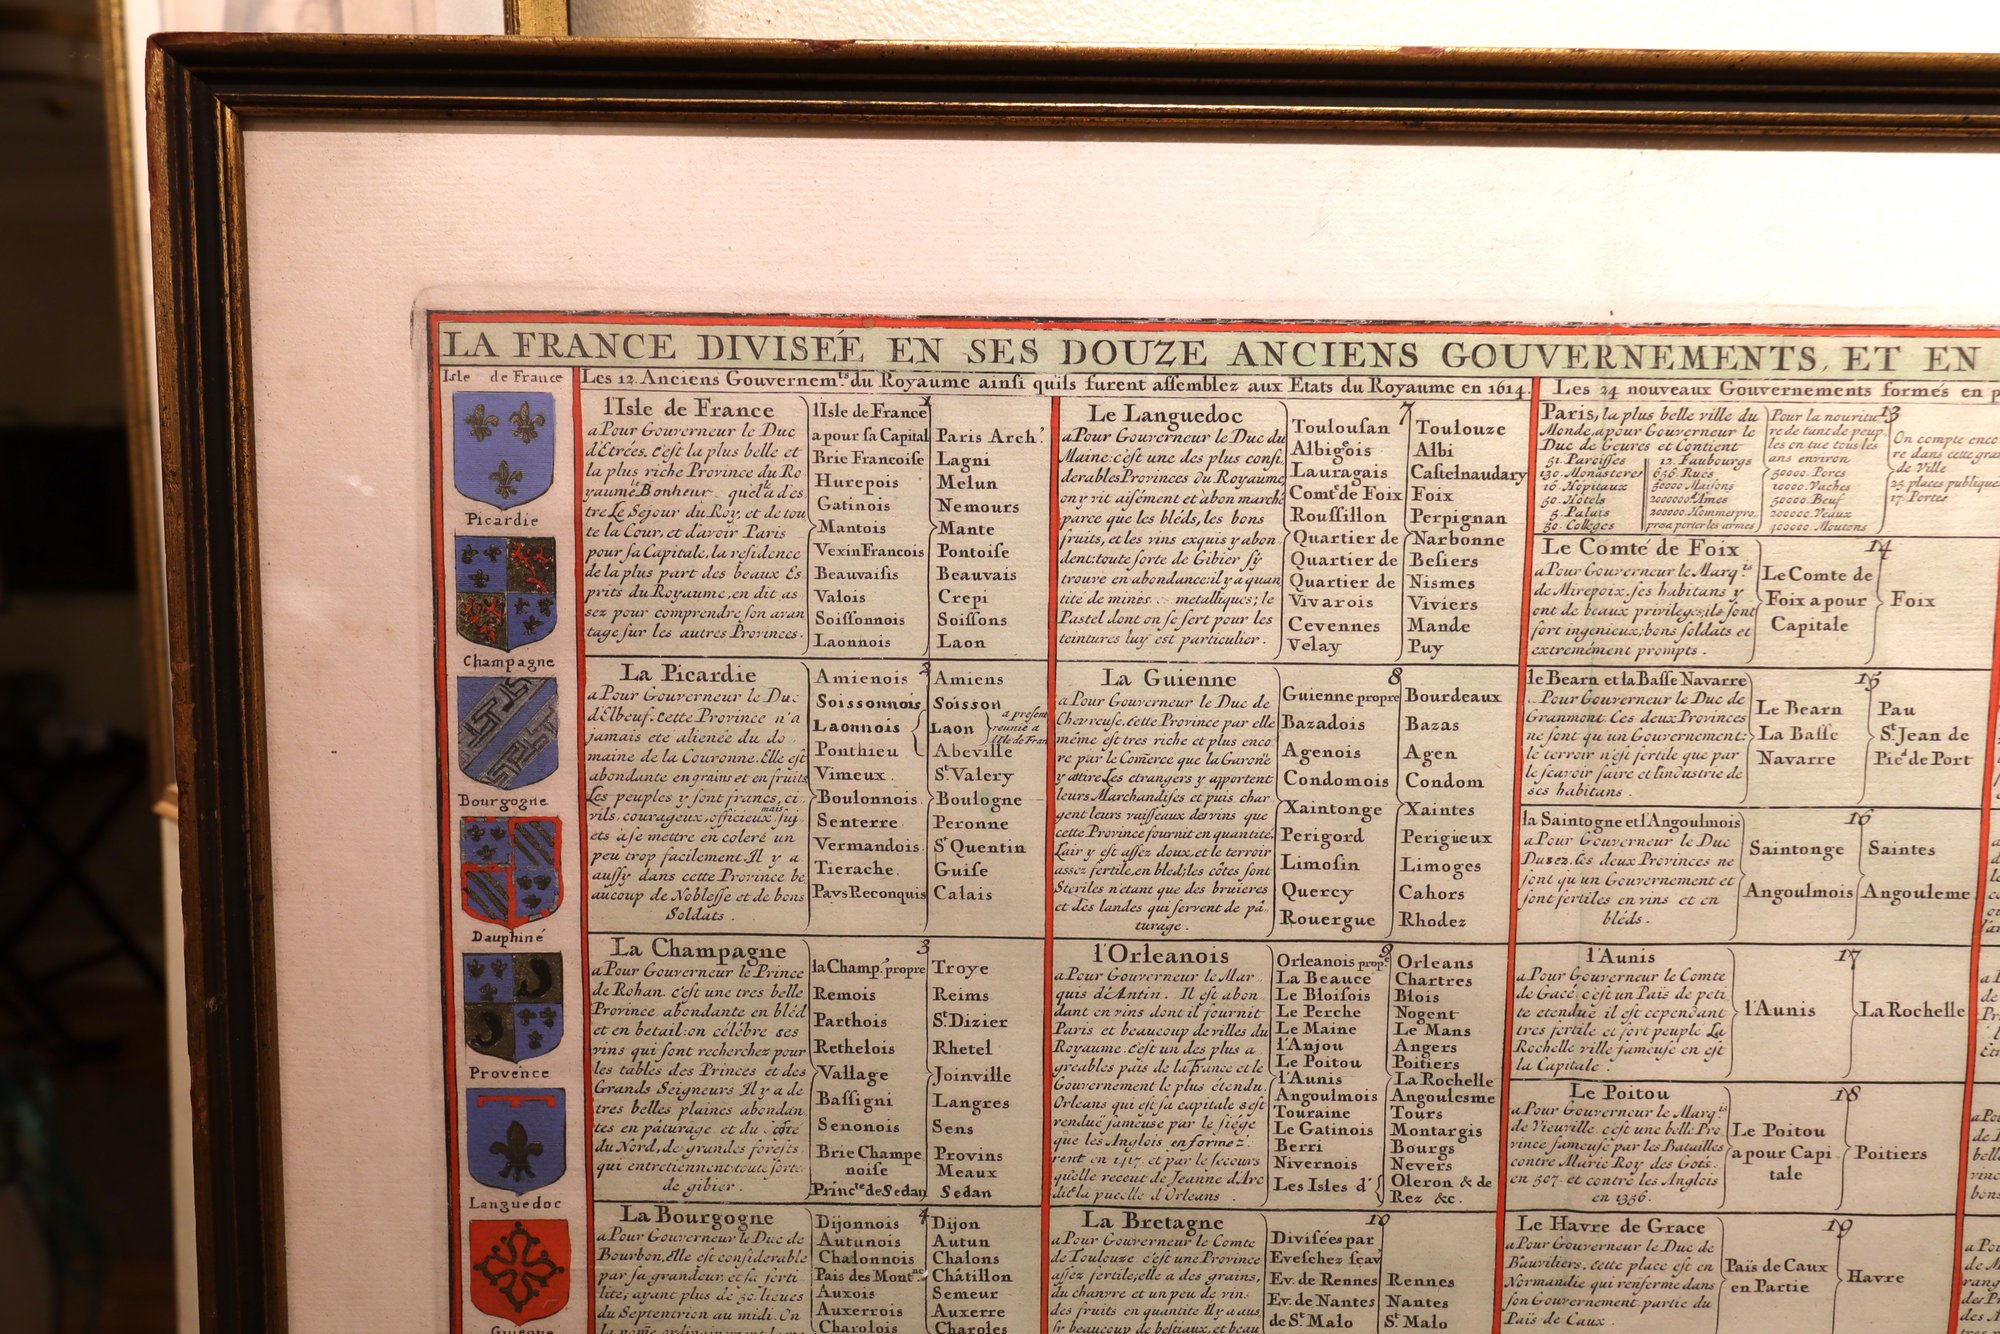 LA FRANCE DIVISÉE EN SES DOUZE ANCIENS GOUVERNEMENTS, ET EN
Isle de France
Picardie
Champagne
Bourgogne
Dauphiné
Provence
Languedoc
Guienne
Les 12. Anciens Gouvernem.ts du Royaume ainsi qu'ils furent assemblez aux Etats du Royaume en 1614.
l'Isle de France
a Pour Gouverneur le Duc
d'Etrées, c'est la plus belle et
la plus riche Province du Ro
yaume le Bonheur qu'elle a d'es
tre Le Sejour du Roy, et de tou
te la Cour, et d'avoir Paris
pour sa Capitale, la residence
de la plus part des beaux Es
prits du Royaume, en dit as
sez pour comprendre son avan
tage sur les autres Provinces.
1
l'Isle de France
a pour sa Capital Paris Arch.
Brie Francoise Lagni
Hurepois Melun
Gatinois Nemours
Mantois Mante
Vexin Francois Pontoise
Beauvaisis Beauvais
Valois Crepi
Soissonnois Soissons
Laonnois Laon
La Picardie
a Pour Gouverneur le Duc
d'Elbeuf. cette Province n'a
jamais ete alienée du do
maine de la Couronne. Elle est
abondante en grains et en fruits
Les peuples y sont francs, ci
vils, courageux, officieux, mais suj
ets à se mettre en coleré un
peu trop facilement. Il y a
aussy dans cette Province be
aucoup de Noblesse et de bons
Soldats.
2
Amienois Amiens
Soissonnois Soisson
Laonnois Laon
a present reunie a l'Isle de Fran
Ponthieu Abeville
Vimeux St. Valery
Boulonnois Boulogne
Senterre Peronne
Vermandois St Quentin
Tierache Guise
Pays Reconquis Calais
La Champagne
a Pour Gouverneur le Prince
de Rohan. c'est une tres belle
Province abondante en bléd
et en betail: on célébre ses
vins qui sont recherchez pour
les tables des Princes et des
Grands Seigneurs Il y a de
tres belles plaines abondan
tes en pâturage et du coté
du Nord, de grandes forests
qui entretiennent toute sorte
de gibier.
3
la Champ. propre Troye
Remois Reims
Parthois St. Dizier
Rethelois Rhetel
Vallage Joinville
Bassigni Langres
Senonois Sens
Brie Champe Provins
noise Meaux
Princte de Sedan Sedan
La Bourgogne
a Pour Gouverneur le Duc de
Bourbon. Elle est considerable
par sa grandeur, et sa ferti
lité; ayant plus de 50. lieues
du Septentrion au midi. On
4
Dijonnois Dijon
Autunois Autun
Chalonnois Chalons
Païs des Montne Châtillon
Auxois Semeur
Auxerrois Auxerre
Charolois Charoles
Le Languedoc
a Pour Gouverneur le Duc du
Maine: c'est une des plus consi
derables Provinces du Royaume,
on y vit aisément et a bon marché
parce que les bléds, les bons
fruits, et les vins exquis y abon
dent: toute sorte de Gibier s'y
trouve en abondance: il y a quan
tité de mines metalliques; le
Pastel dont on se sert pour les
teintures luy est particulier.
7
Toulousan Toulouze
Albigeois Albi
Lauragais Castelnaudary
Comté de Foix Foix
Roussillon Perpignan
Quartier de Narbonne
Quartier de Besiers
Quartier de Nismes
Vivarois Viviers
Cevennes Mande
Velay Puy
La Guienne
a Pour Gouverneur le Duc de
Chevreuse, cette Province par elle
même est tres riche et plus enco
re par le Comerce que la Garone
y attire Les etrangers y apportent
leurs Marchandises et puis char
gent leurs vaisseaux des vins que
cette Province fournit en quantité.
L'air y est assez doux, et le terroir
assez fertile, en bled; les côtes sont
Steriles n'etant que des bruieres
et des landes qui servent de pâ
turage.
8
Guienne propre Bourdeaux
Bazadois Bazas
Agenois Agen
Condomois Condom
Xaintonge Xaintes
Perigord Perigueux
Limosin Limoges
Quercy Cahors
Rouergue Rhodez
l'Orleanois
a Pour Gouverneur le Mar
quis d'Antin. Il est abon
dant en vins dont il fournit
Paris et beaucoup de villes du
Royaume. c'est un des plus a
greables païs de la France et le
Gouvernement le plus étendu.
Orleans qui est sa capitale s'est
rendué fameuse par le siége
que les Anglois en formez
rent en 1417. et par le secours
qu'elle receut de Jeanne d'Arc
dite la pucelle d'Orleans.
9
Orleanois prop.e Orleans
La Beauce Chartres
Le Bloisois Blois
Le Perche Nogent
Le Maine Le Mans
l'Anjou Angers
Le Poitou Poitiers
l'Aunis La Rochelle
Angoulmois Angoulesme
Touraine Tours
Le Gatinois Montargis
Berri Bourgs
Nivernois Nevers
Les Isles d' Oleron & de
Rez &c.
La Bretagne
a Pour Gouverneur le Comte
de Toulouze c'est une Province
assez fertile; elle a des grains,
du chanvre et un peu de vin.
des fruits en quantité Il y a aus
sy beaucoup de bestiaux, et beau
10
Divisées par
Evefchez sçav
Ev. de Rennes Rennes
Ev. de Nantes Nantes
de St. Malo St. Malo
Les 24 nouveaux Gouvernements formés en p
Paris, la plus belle ville du
Monde, a pour Gouverneur le
Duc de Gevres et Contient
51. Paroisses 12. Faubourgs
130. Monasteres 656. Rues
16. Hôpitaux 50000 Maisons
50. Hôtels 2000000. Ames
5. Palais 200000. Hommes pro
50. Colleges pres a porter les armes
13
Pour la nouritu
re de tant de peup
les on tue tous les
ans environ
50000. Porcs
10000. Vaches
50000. Beuf
200000. Veaux
400000. Moutons
On compte enco
re dans cette gran
de Ville
25 places publique
17. Portes
Le Comté de Foix
a Pour Gouverneur le Marq.is
de Mirepoix. ses habitans y
ont de beaux privileges; ils sont
fort ingenieux; bons soldats et
extremément prompts.
14
Le Comte de
Foix a pour Foix
Capitale
le Bearn et la Basse Navarre
Pour Gouverneur le Duc de
Granmont. Ces deux Provinces
ne sont qu'un Gouvernement:
le terroir n'est fertile que par
le scavoir faire et l'industrie de
ses habitans.
15
Le Bearn Pau
La Basse St. Jean de
Navarre Pied de Port
la Saintogne et l'Angoulmois
a Pour Gouverneur le Duc
Dusez. les deux Provinces ne
sont qu'un Gouvernement et
sont fertiles en vins et en
bléds.
16
Saintonge Saintes
Angoulmois Angouleme
l'Aunis
a Pour Gouverneur le Comte
de Gacé. c'est un Païs de peti
te etendué il est cependant
tres fertile et fort peuplé La
Rochelle ville fameuse en est
la Capitale.
17
l'Aunis La Rochelle
Le Poitou
a Pour Gouverneur le Marq.is
de Vieuville. c'est une belle Pro
vince fameuse par les Batailles
contre Alaric Roy des Gots.
en 507. et contre les Anglois
en 1356.
18
Le Poitou
a pour Capi Poitiers
tale
Le Havre de Grace
a Pour Gouverneur le Duc de
Bauviliers, cette place est en
Normandie qui renferme dans
son Gouvernement partie du
Païs de Caux.
19
Païs de Caux Havre
en Partie